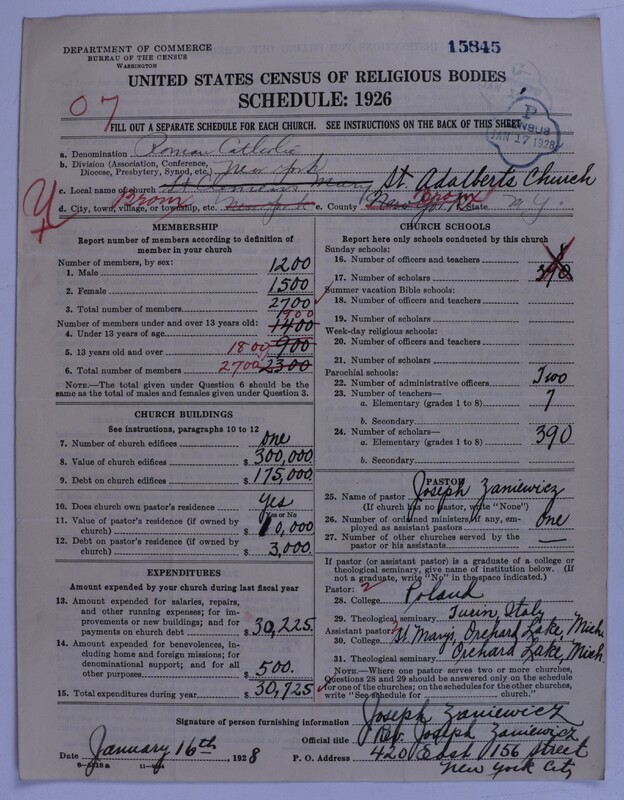 15845
DEPARTMENT OF COMMERCE
BUREAU OF THE CENSUS
WASHINGTON
UNITED STATES CENSUS OF RELIGIOUS BODIES
SCHEDULE: 1926
07
CENSUS JAN 17 1928
FILL OUT A SEPARATE SCHEDULE FOR EACH CHURCH. SEE INSTRUCTIONS ON THE BACK OF THIS SHEET
a. Denomination Roman Catholic
b. Division (Association, Conference, Diocese, Presbytery, Synod, etc.) New York
c. Local name of church St Adalberts Church
d. City, town, village, or township, etc. Bronx New York e. County New York Bronx State N.Y.
MEMBERSHIP
Report number of members according to definition of member in your church
Number of members, by sex:
1. Male 1200
2. Female 1500
3. Total number of members 2700
Number of members under and over 13 years old:
4. Under 13 years of age 1400 900
5. 13 years old and over 1800 900
6. Total number of members 2700 2300
NOTE.—The total given under Question 6 should be the same as the total of males and females given under Question 3.
CHURCH BUILDINGS
See instructions, paragraphs 10 to 12
7. Number of church edifices one
8. Value of church edifices $ 300,000.
9. Debt on church edifices $ 175,000.
10. Does church own pastor's residence? Yes
Yes or No
11. Value of pastor's residence (if owned by church) $ 10,000
12. Debt on pastor's residence (if owned by church) $ 3,000.
EXPENDITURES
Amount expended by your church during last fiscal year
13. Amount expended for salaries, repairs, and other running expenses; for improvements or new buildings; and for payments on church debt $ 30,225.
14. Amount expended for benevolences, including home and foreign missions; for denominational support; and for all other purposes $ 500.
15. Total expenditures during year $ 30,725
CHURCH SCHOOLS
Report here only schools conducted by this church
Sunday schools:
16. Number of officers and teachers
17. Number of scholars 390
Summer vacation Bible schools:
18. Number of officers and teachers
19. Number of scholars
Week-day religious schools:
20. Number of officers and teachers
21. Number of scholars
Parochial schools:
22. Number of administrative officers Two
23. Number of teachers—
a. Elementary (grades 1 to 8) 7
b. Secondary
24. Number of scholars—
a. Elementary (grades 1 to 8) 390
b. Secondary
PASTOR
25. Name of pastor Joseph Zaniewicz
(If church has no pastor, write "None")
26. Number of ordained ministers, if any, employed as assistant pastors one
27. Number of other churches served by the pastor or his assistants —
If pastor (or assistant pastor) is a graduate of a college or theological seminary, give name of institution below. (If not a graduate, write "No" in the space indicated.)
Pastor: 2
28. College Poland
29. Theological seminary Turin, Italy
Assistant pastor:
30. College St Mary's, Orchard Lake, Mich
31. Theological seminary Orchard Lake, Mich.
NOTE.—Where one pastor serves two or more churches, Questions 28 and 29 should be answered only on the schedule for one of the churches; on the schedules for the other churches, write "See schedule for church."
Signature of person furnishing information Joseph Zaniewicz
Official title Rev. Joseph Zaniewicz
Date January 16th, 1928 P. O. Address 420 East 156 street
New York City